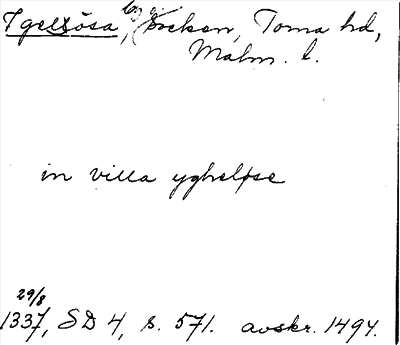 Igelösa, by o. socken, Torna hd,
Malm. l.
in villa ygheløse
29/8
1337, SD 4, s. 571. avskr. 1494.